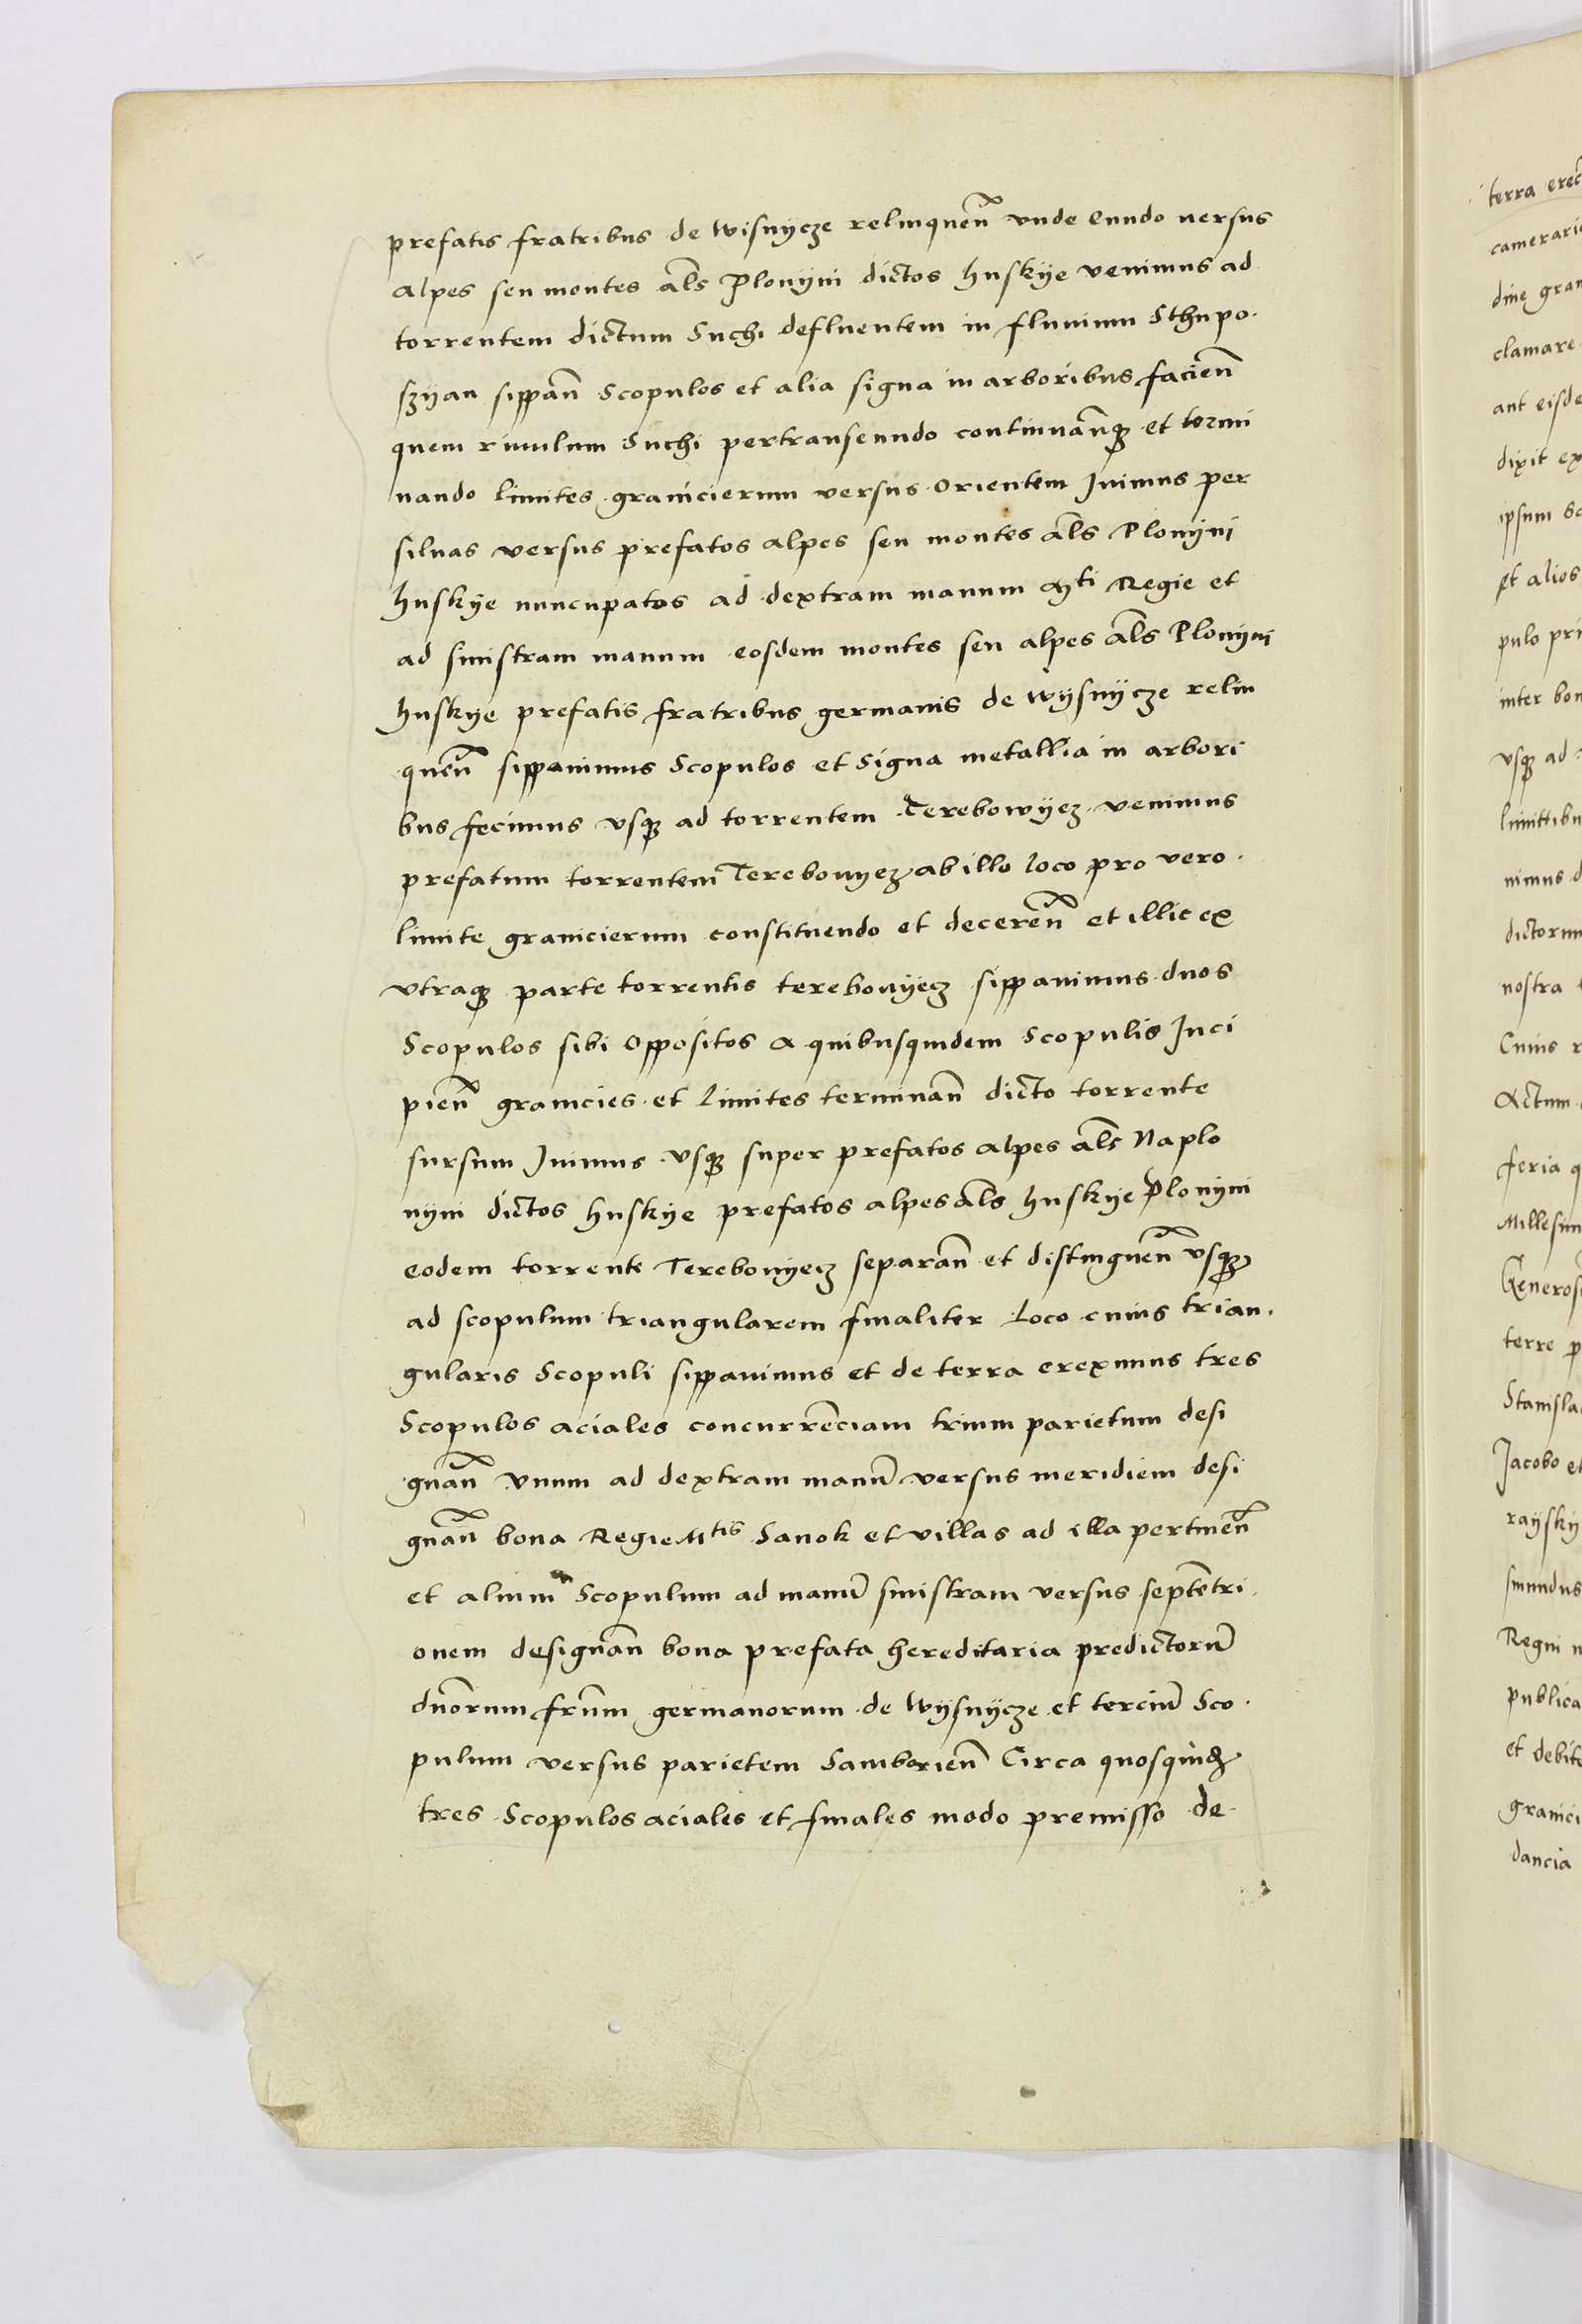 prefatis fratribus de Wisnycze relinquen̄ vnde eundo versus
alpes seu montes als̄ Plonyni dictos huskye venimus ad
torrentem dictum Suchi defluentem in fluuium Sthupo
szyan sippan̄ Scopulos et alia signa in arboribus facien̄
quem riuulum Suchi pertranseundo continuan̄qꝫ et termi
nando limites granicierum versus orientem Iuimus per
siluas versus prefatos alpes seu montes als̄ Plonyni
huskye nuncupatos ad dextram manum Mti Regie et
ad sinistram manum eosdem montes seu alpes als̄ Plonyni
huskye prefatis fratribus germanis de Wysnycze relin
quen̄ sippauimus Scopulos et Signa metallia in arbori
bus fecimus vsqꝫ ad torrentem Terebowyecz venimus
prefatum torrentem Terebouyecz ab illo loco pro vero
limite granicierum constituendo et deceren̄ et illic ex
vtraqꝫ parte torrentis terebouyecz sippauimus duos
Scopulos sibi oppositos a quibusquidem Scopulis Inci
pien̄ granicies et limites terminan̄ dicto torrente
sursum Iuimus vsqꝫ super prefatos alpes als̄ Naplo
nyni dictos huskye prefatos alpes als̄ huskye Plonyni
eodem torrente Terebouyecz separan̄ et distinguen̄ vsqꝫ
ad scopulum triangularem finaliter Loco cuius trian
gularis Scopuli sippauimus et de terra ereximus tres
Scopulos aciales concurrēciam trium parietum desi
gnan̄ vnum ad dextram manū versus meridiem desi
gnan̄ bona Regie Mtis Sanok et villas ad illa pertinen̄
et alium Scopulum ad manū sinistram versus septētri
onem designan̄ bona prefata hereditaria predictorū
dn̄orum frūm germanorum de Wysnycze et terciū Sco
pulum versus parietem Samborien̄ Circa quosquidꝫ
tres Scopulos aciales et finales modo premisso de
terra erec
camerari
dinę gran
clamare
ant eisde
dixit ex
ipsum
et alios
pulo pri
inter bon
vsqꝫ ad
limittibu
nimus d
dictorum
nostra
Cuius r
Actum
feria q
Millesim
Generos
terre p
Stanisla
Jacobo et
raysky
smundus
Regni n
publica
et debit
granici
dancia